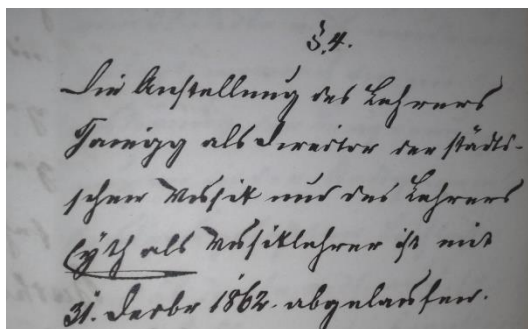 §. 4.
Die Anstellung des Lehrers
als Director der städti-
schen Musik und des Lehrers
Eyth als Musiklehrer ist mit
31. Decbr 1862. abgelaufen.